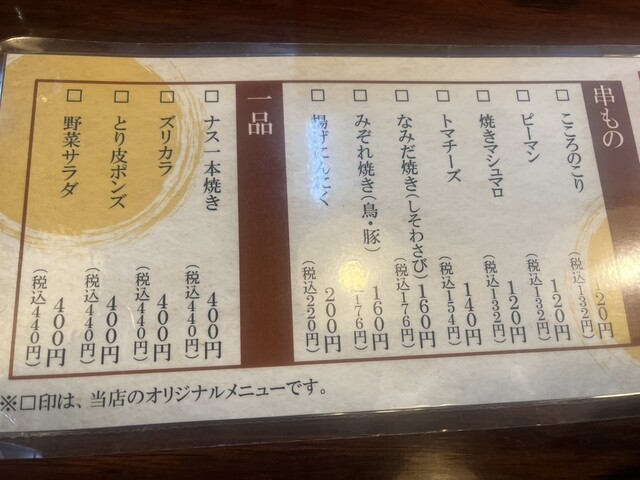 串もの
□ こころのこり 120円
(税込132円)
□ ピーマン 120円
(税込132円)
□ 焼きマシュマロ 120円
(税込132円)
□ トマチーズ 140円
(税込154円)
□ なみだ焼き(しそわさび) 160円
(税込176円)
□ みぞれ焼き(鳥・豚) 160円
(税込176円)
□ 揚げにんにく 200円
(税込220円)
一品
□ ナス一本焼き 400円
(税込440円)
□ ズリカラ 400円
(税込440円)
□ とり皮ポンズ 400円
(税込440円)
□ 野菜サラダ 400円
(税込440円)
※□印は、当店のオリジナルメニューです。